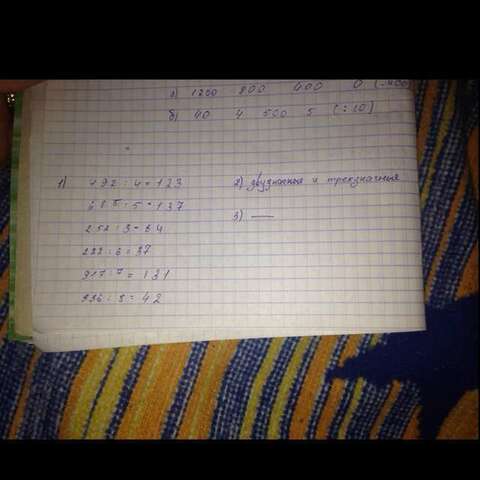 а) 1200 800 400 0 (-400)
б) 40 4 500 5 (:10)
1) 492 : 4 = 123
685 : 5 = 137
252 : 3 = 84
222 : 6 = 37
917 : 7 = 131
336 : 8 = 42
2) двузначные и трехзначные
3) —